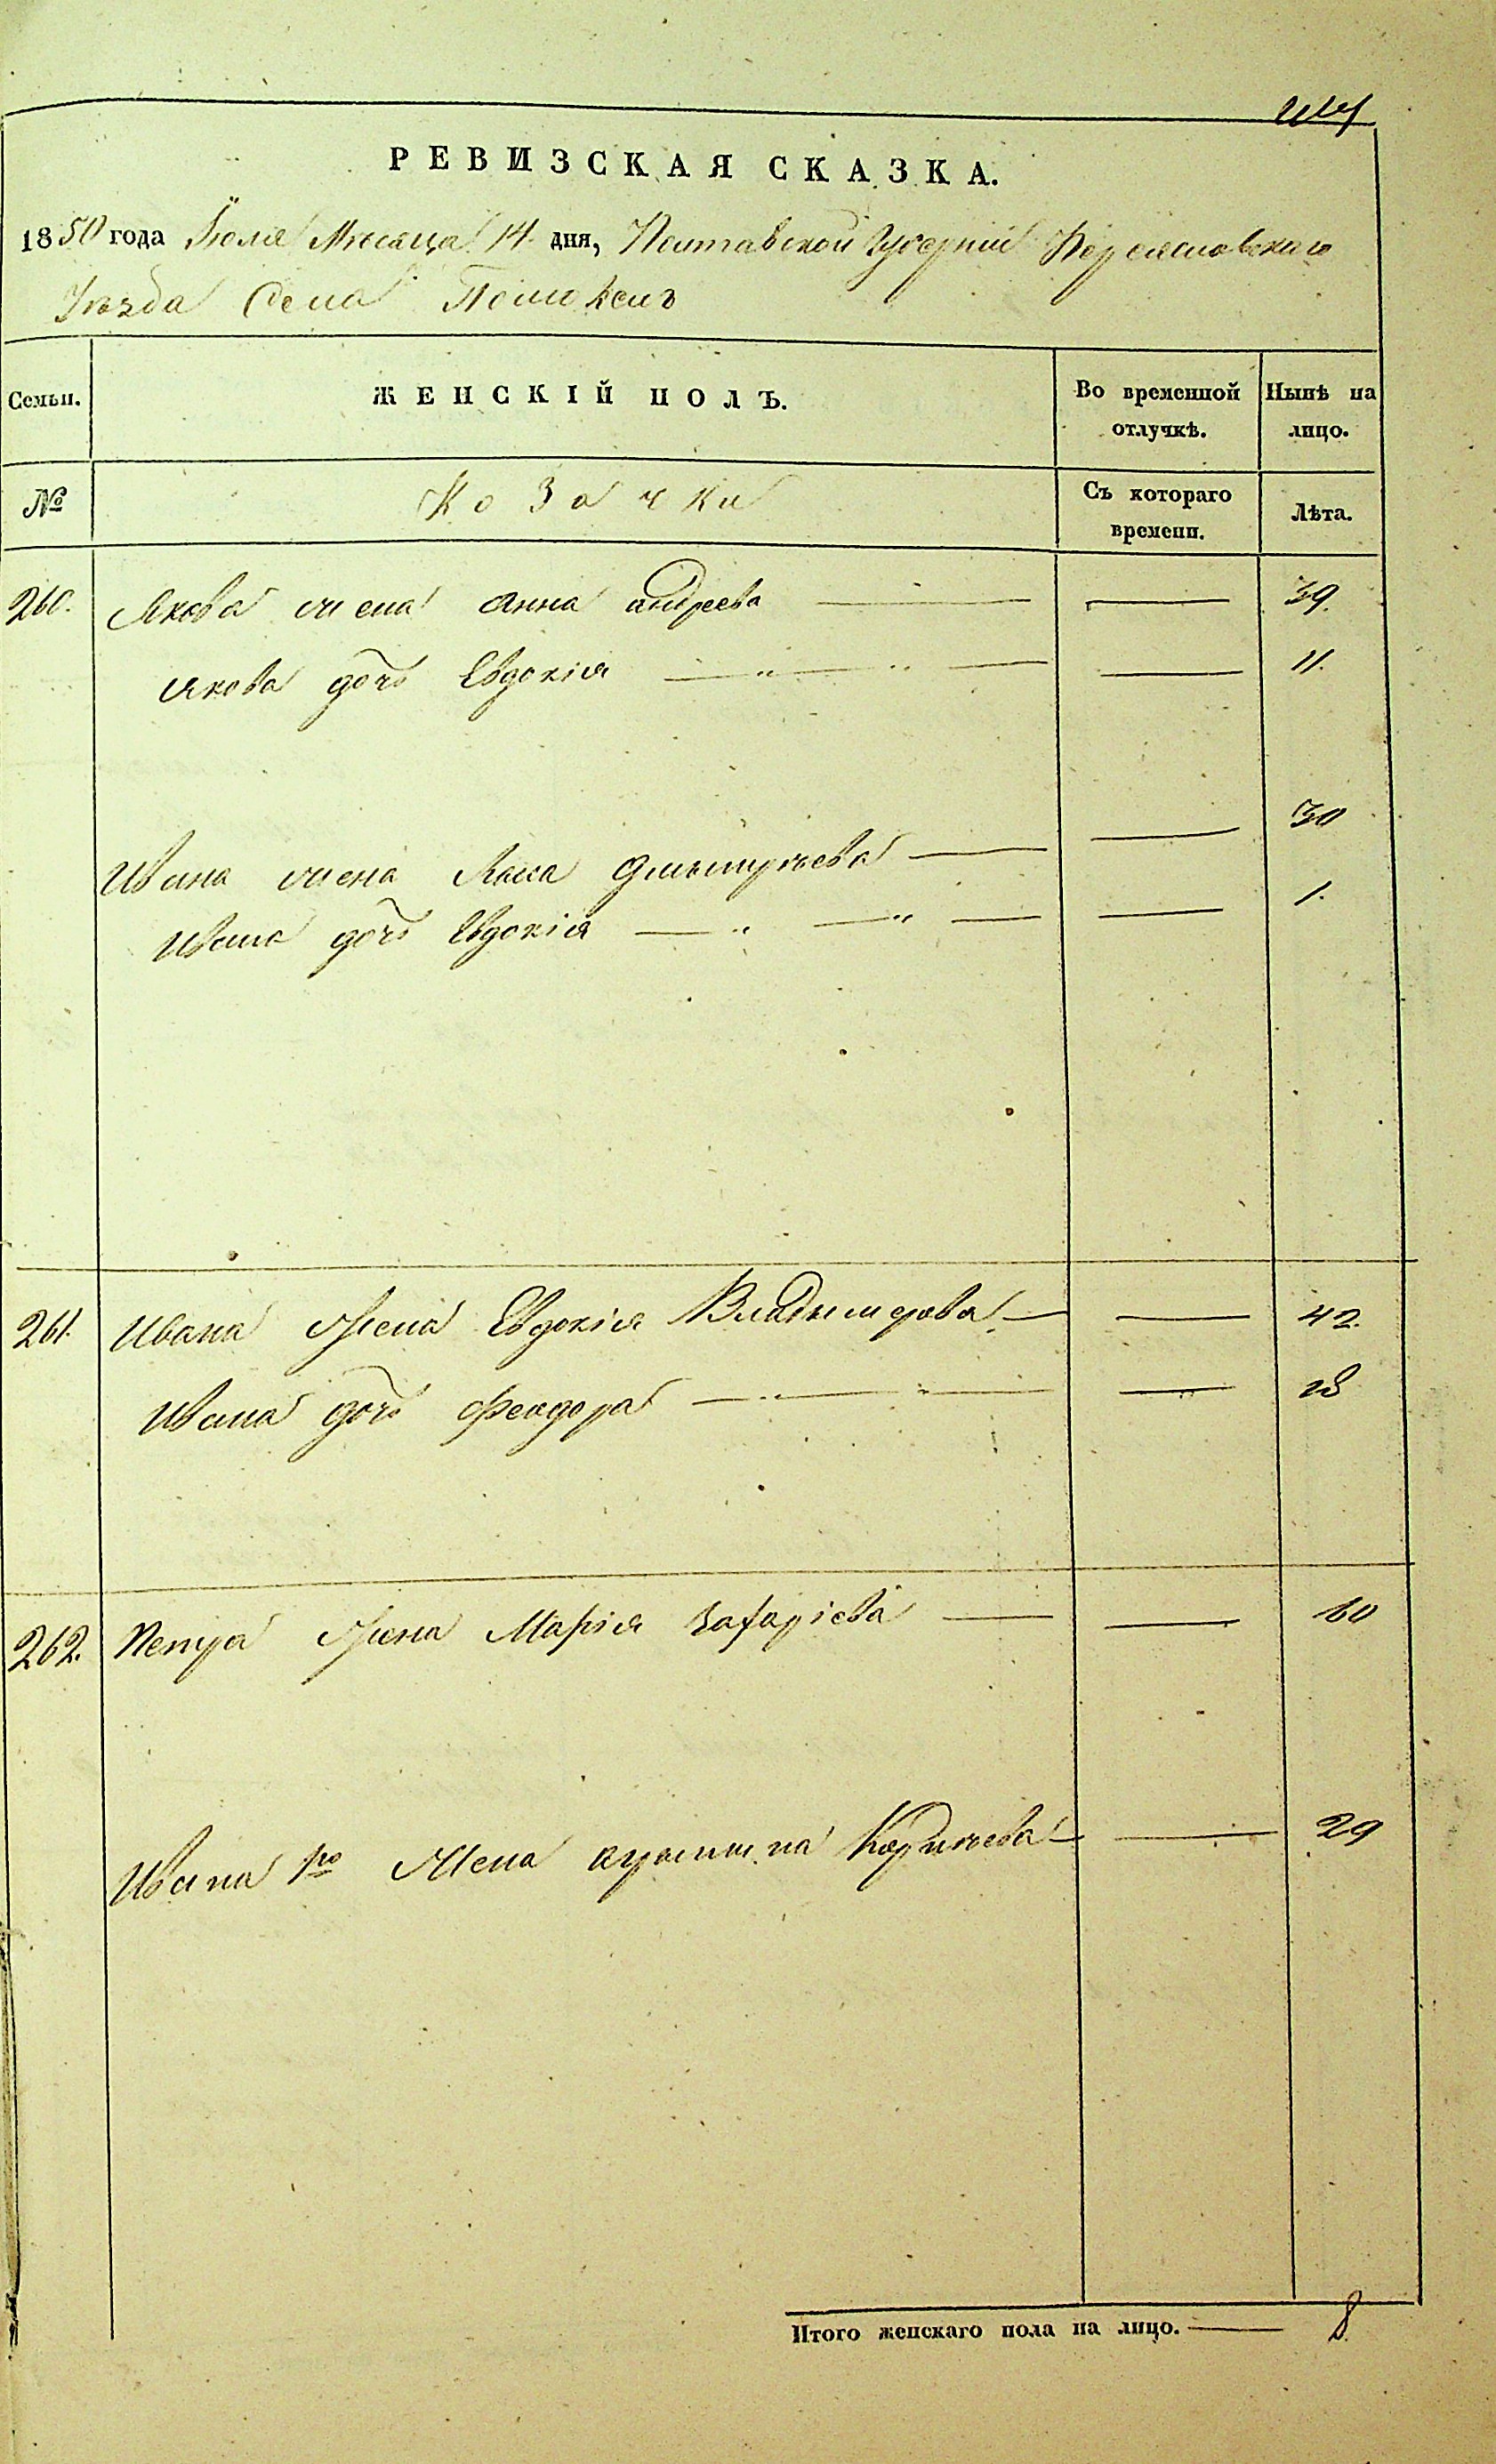 РЕВИЗСКАЯ СКАЗКА.
1850 года Іюля Мѣсяца 14 дня, Полтавской Губерніи Переяславскаго
Уѣзда Села
Семьи. ЖЕНСКІЙ ПОЛЪ. Во временной отлучкѣ. Нынѣ на лицо.
№ Козачки Съ котораго времени. Лѣта.
260. Якова жена Анна Андреева — — 39.
Якова дочь Евдокія — " — " — — 11.
Ивана жена Дмытріева — — 30
Ивана дочь Евдокія — " — " — — 1.
261. Ивана Жена Евдокія Владымерова — — 42.
Ивана дочь Феодора — " — " — —
262. Петра Жена Марія Захаріева — — 60
Ивана 1го Жена — — 29
Итого женскаго пола на лицо. — 8.